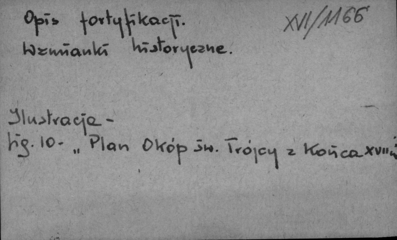 Opis fortyfikacji.
XVI/1166
Wzmianki historyczne.
Ilustracja -
fig. 10 - „Plan Okóp św. Trójcy z końca XVII w